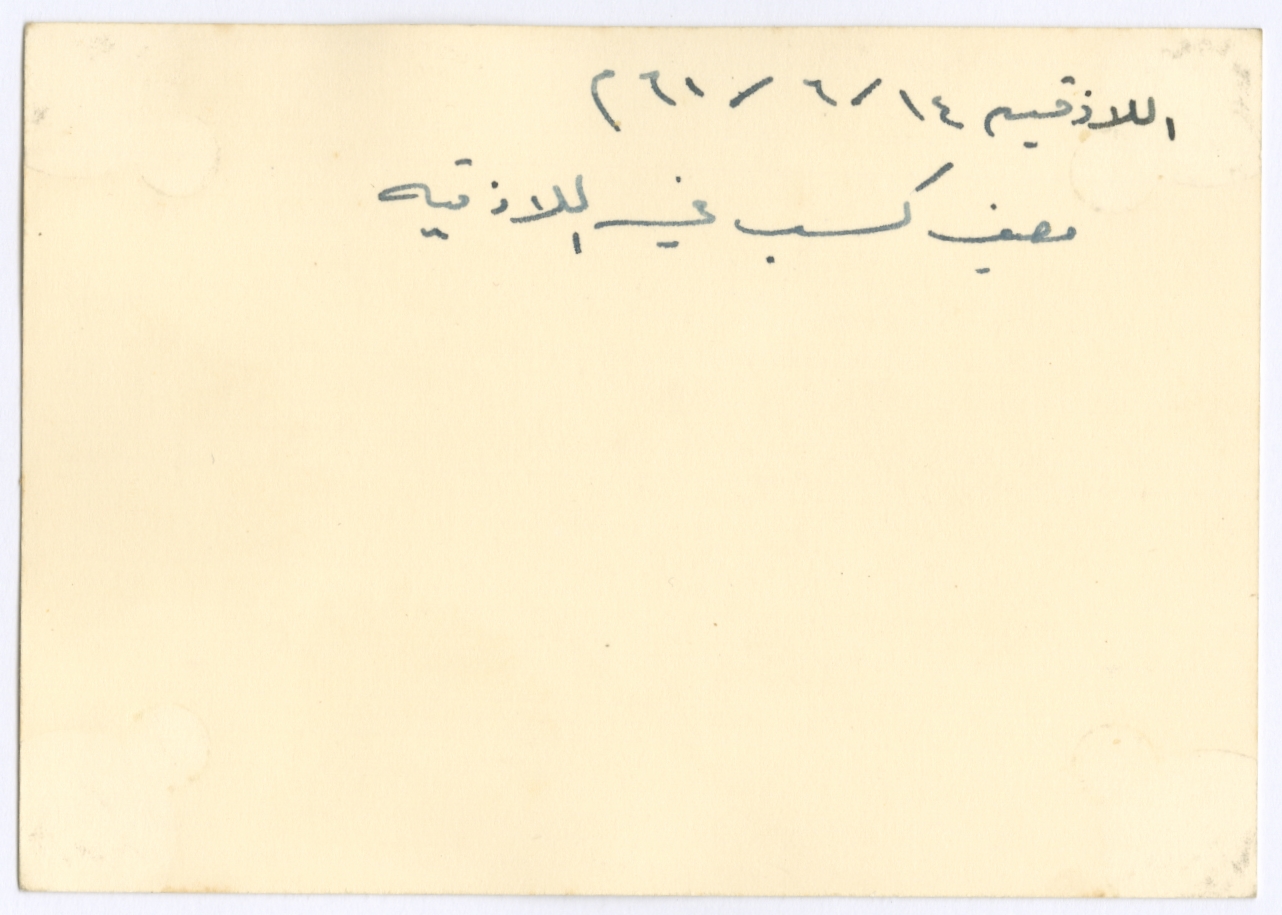 اللاذقيه ١٤ / ٦ / ٦١ م
مصيف كسب في اللاذقيه